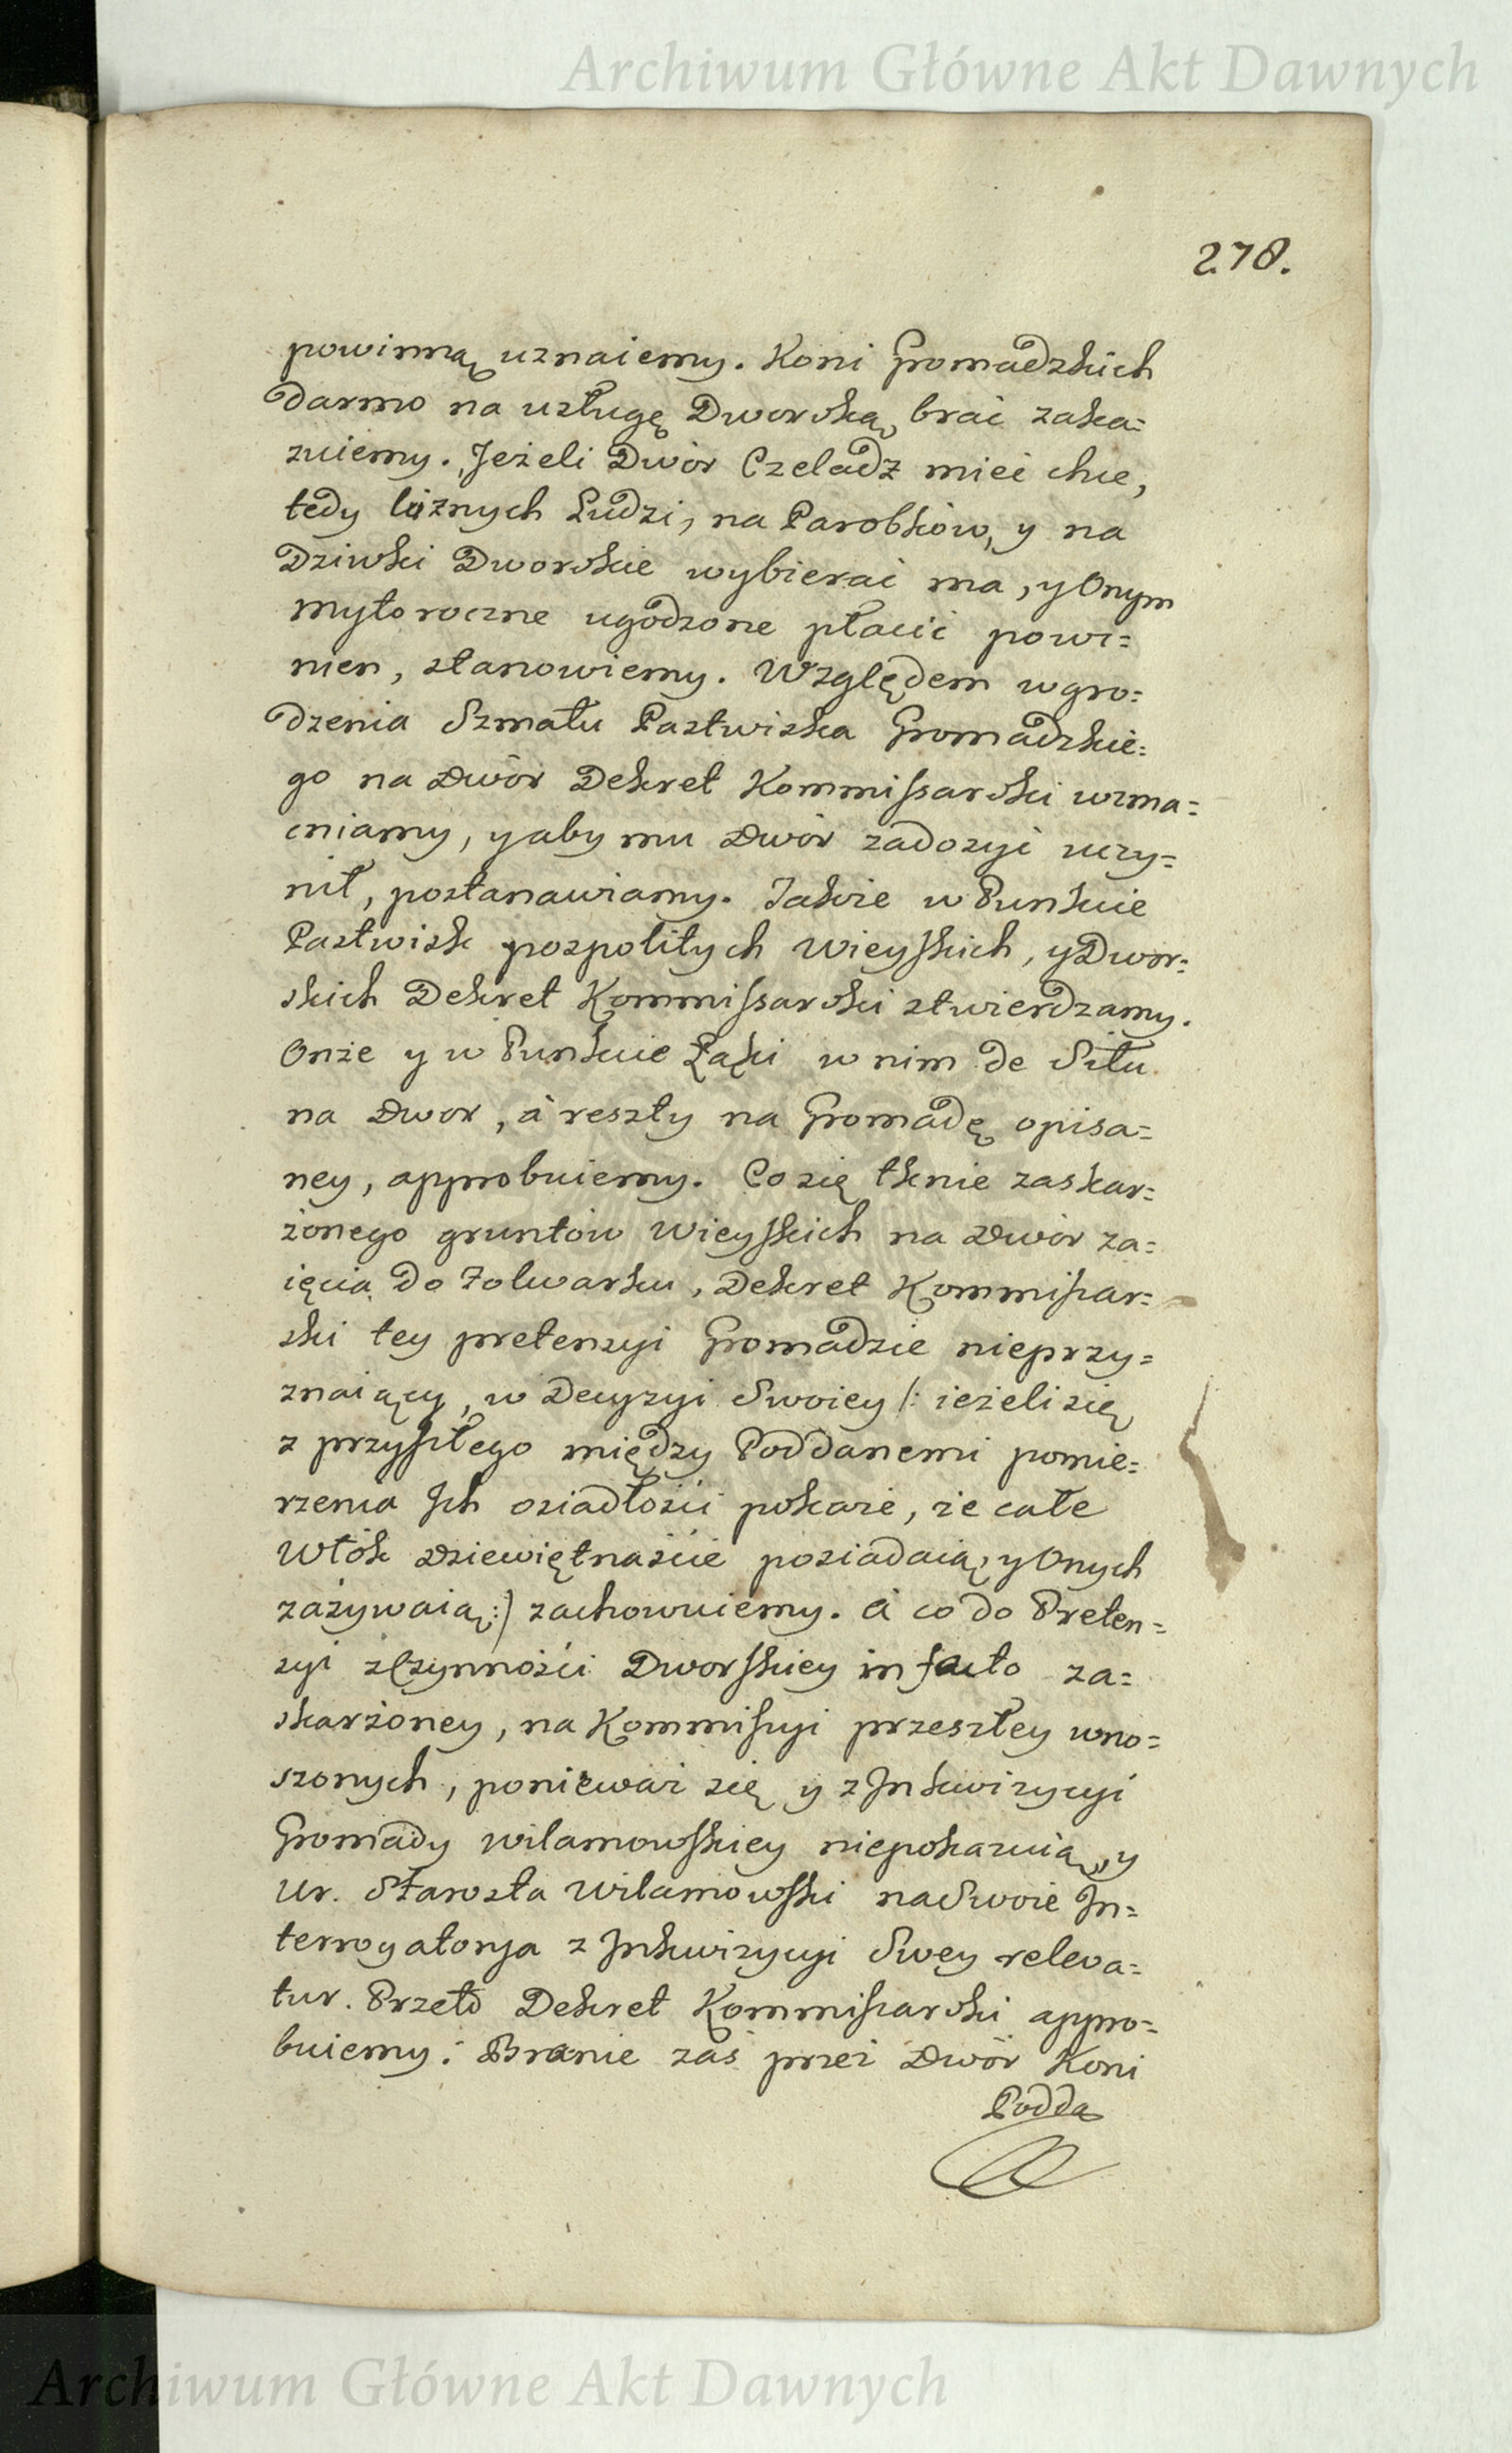 Archiwum Główne Akt Dawnych
278.
powinną uznaiemy. Koni Gromadzkich
darmo na usługę Dworską, brać zaka=
zuiemy. Jeżeli Dwór Czeladz mieć chce,
tedy lóznych Ludzi, na Parobków, y na
Dziwki Dworskie wybierać ma, y Onym
myto roczne ugodzone płacić powi=
nien, stanowiemy. Względem wgro=
dzenia Szmatu Pastwiska Gromadzkie=
go na Dwór Dekret Kommissarski wzma=
cniamy, y aby mu Dwór zadosyć uczy=
nił, postanawiamy. Także w Punkcie
Pastwisk pospolitych Wieyskich, y Dwor=
skich Dekret Kommissarski stwierdzamy.
Onże y w Punkcie Łąki w nim de Situ
na Dwor, á reszty na Gromadę opisa=
ney, approbuiemy. Co się tknie zaskar=
żonego gruntów Wieyskich na Dwór za=
ięcia do Folwarku, Dekret Kommissar=
ski tey pretensyi Gromadzie nieprzy=
znaiący, w Decyzyi Swoiey /: ieżeli się
z przyszłego między Poddanemi pomie=
rzenia Jch osiadłości pokaże, że całe
Włók dziewiętnaście posiadaią, y Onych
zażywaią :/ zachowuiemy. á co do Preten=
syi z Czynności Dworskiey in facto za=
skarżoney, na Kommissyi przeszłey wno=
szonych, ponieważ się y z Jnkwizycyi
Gromady wilamowskiey niepokazuią, y
Ur. Starosta Wilamowski na Swoie Jn=
terrogatorya z Jnkwizycyi Swey releva=
tur. Przeto Dekret Kommissarski appro=
buiemy. Branie zaś przez Dwór Koni
Podda
Archiwum Główne Akt Dawnych